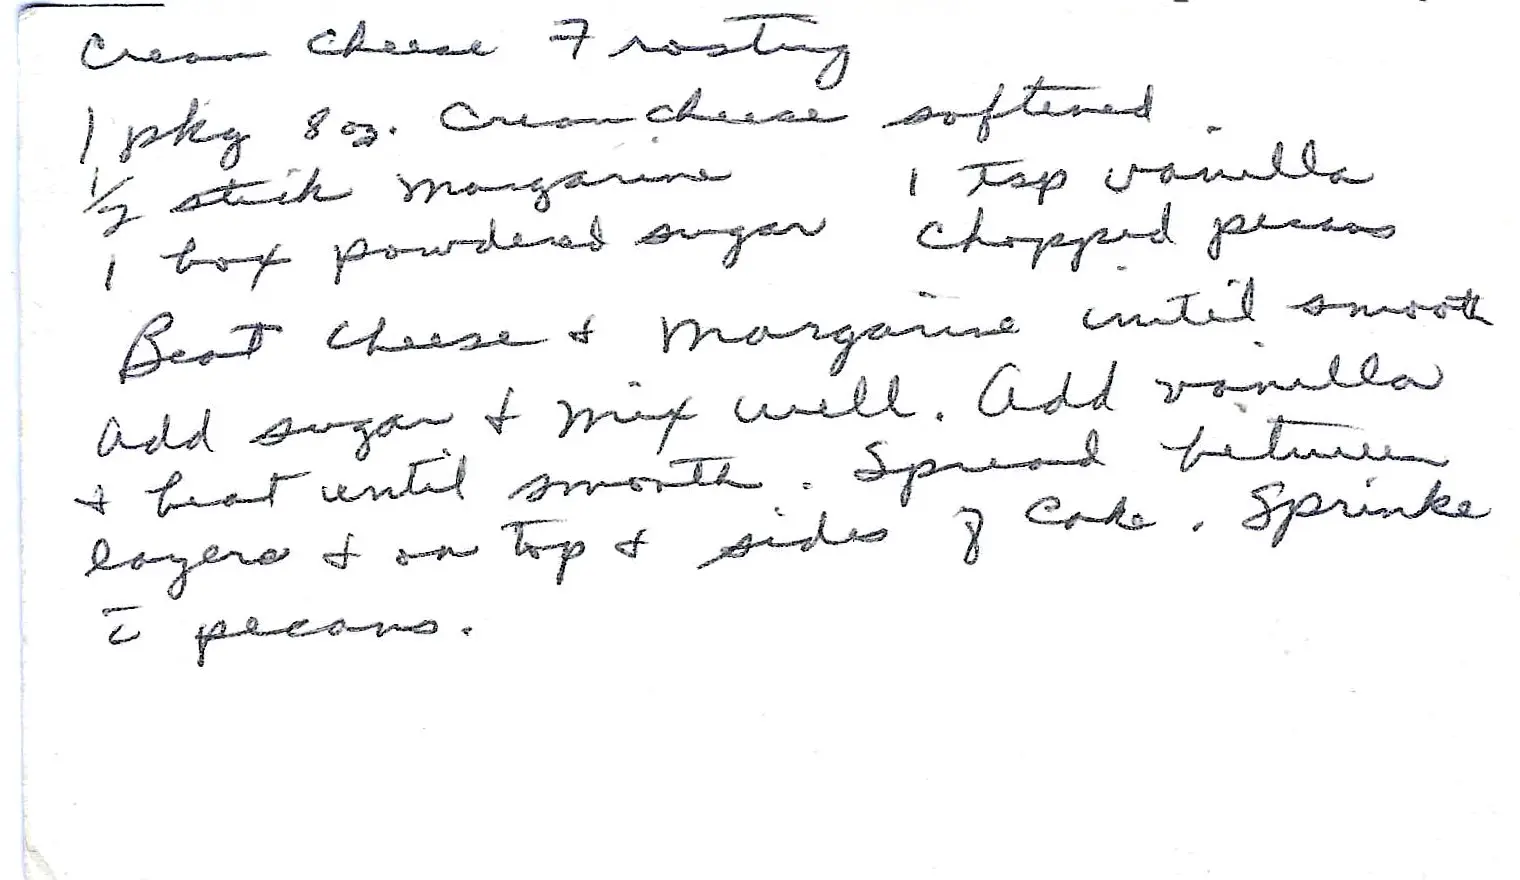 Cream Cheese Frosting
1 pkg 8 oz. Cream cheese softened
1/2 stick margarine 1 tsp vanilla
1 box powdered sugar chopped pecans
Beat cheese & margarine until smooth
add sugar & mix well. Add vanilla
& beat until smooth. Spread between
layers & on top & sides of cake. Sprinke
c̄ pecans.